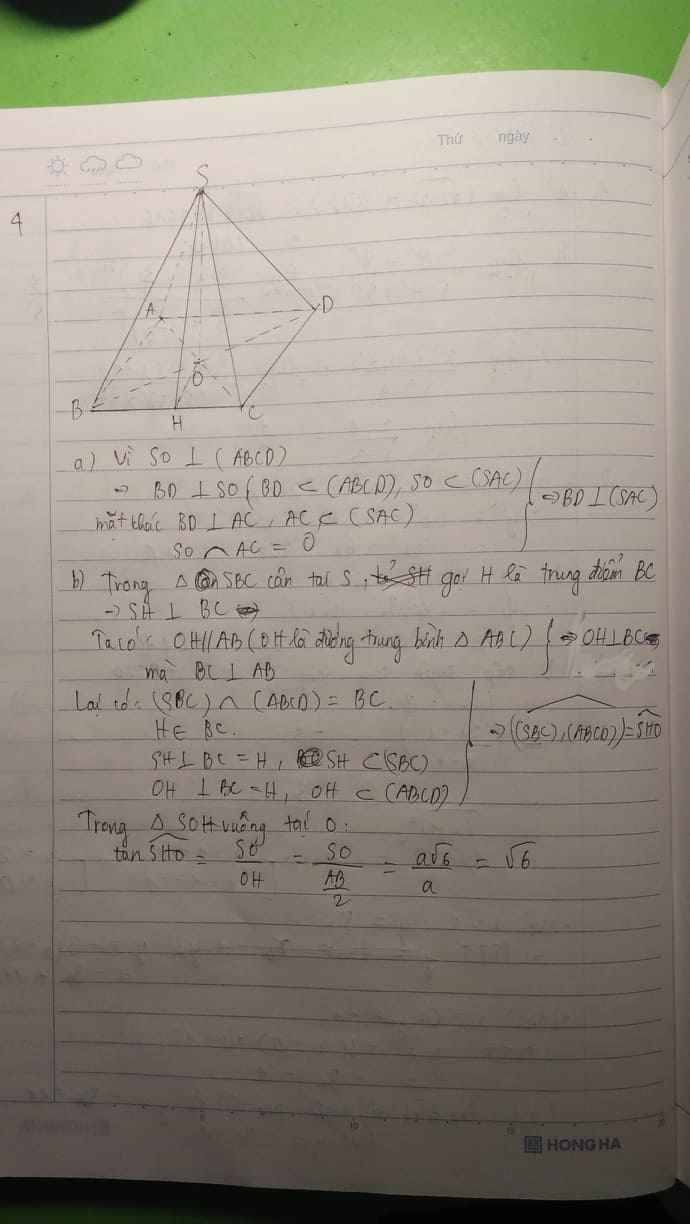 Thứ ngày
4
S
A
D
O
B
H
C
a) Vì SO ⊥ (ABCD)
→ BD ⊥ SO ( BD ⊂ (ABCD), SO ⊂ (SAC)
mặt khác BD ⊥ AC, AC ⊂ (SAC)
SO ∩ AC = O
⇒ BD ⊥ (SAC)
b) Trong Δ SBC cân tại S, gọi H là trung điểm BC
→ SH ⊥ BC
Ta có: OH // AB (OH là đường trung bình Δ ABC)
mà BC ⊥ AB
⇒ OH ⊥ BC
Lại có: (SBC) ∩ (ABCD) = BC.
H ∈ BC.
SH ⊥ BC = H, SH ⊂ (SBC)
OH ⊥ BC = H, OH ⊂ (ABCD)
⇒ ((SBC), (ABCD)) = SHO
Trong Δ SOH vuông tại O:
tan SHO = SO/OH = SO/(AB/2) = a√6/a = √6
HONG HA